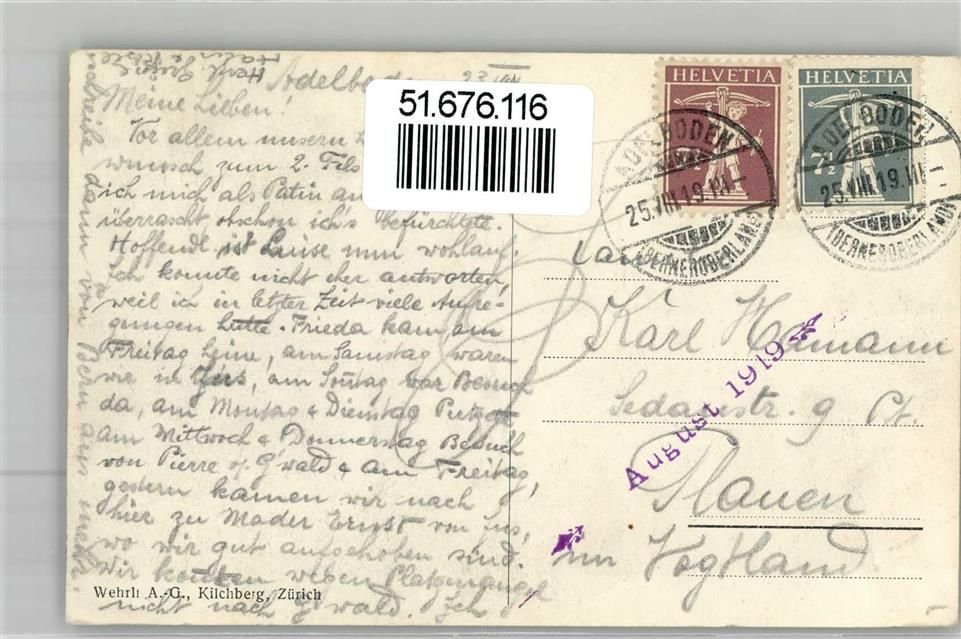 Adelboden 23.
Meine Lieben!
Vor allem unsern
wunsch zum 2.
ich mich als Patin
überrascht obschon ich's befürchtete.
Hoffendl ist Luise nun wohlauf.
Ich konnte nicht eher antworten,
weil ich in letzter Zeit viele Aufre-
gungen hatte. Frieda kam am
Freitag heim, am Samstag waren
wir in , am Sontag war Besuch
da, am Montag & Dienstag
am Mittwoch & Donnerstag Besuch
von Pierre v/ G'wald & am Freitag,
gestern kamen wir nach
hier zu Ernst von
wo wir gut aufgehoben sind.
Wir konnten wegen Platzmangel
nicht nach G'wald. Ich
schreibe dann von Bern aus mehr.
Herzl. Grüsse
Wehrli A.-G., Kilchberg, Zürich
51.676.116
HELVETIA
7½
ADELBODEN
25.VIII.19.III-
(BERNEROBERLAND)
HELVETIA
7½
ADELBODEN
25.VIII.19.III-
(BERNEROBERLAND)
Karl Hamann
Sedanstr. 9 Pt.
Plauen
im Vogtland
August 1919